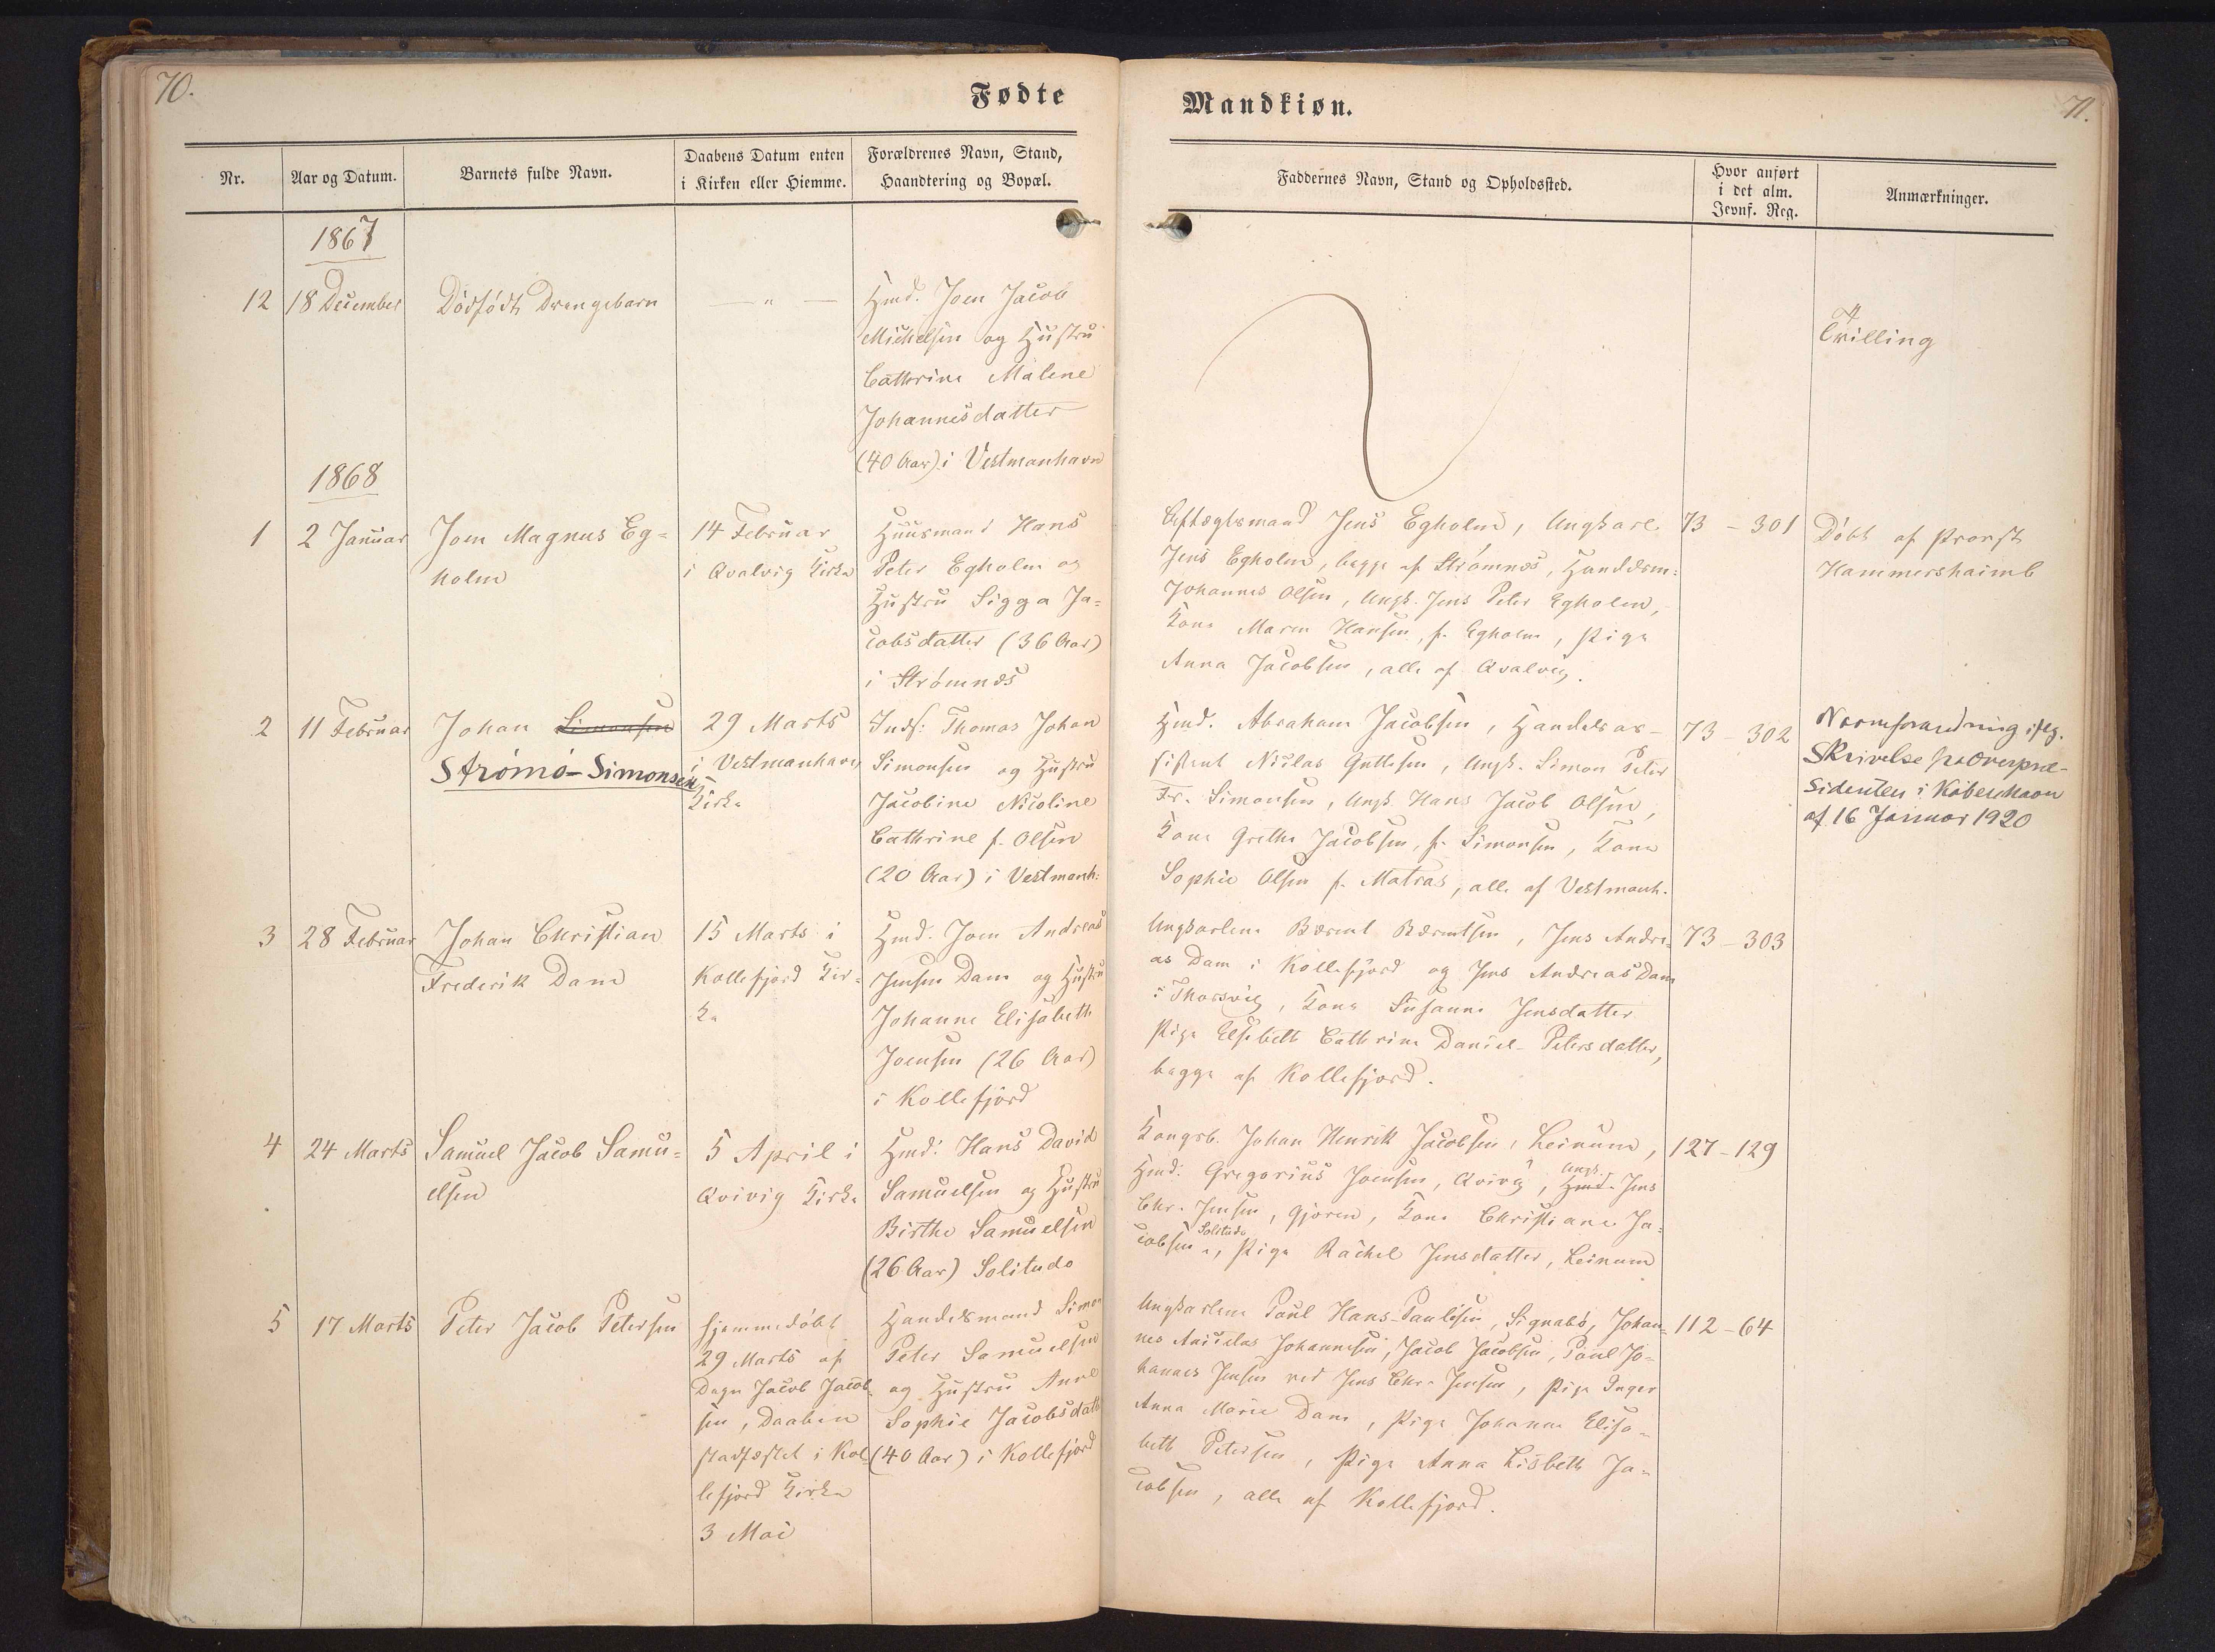 70.
Fødte
Nr.
Aar og Datum.
Barnets fulde Navn.
Daabens Datum enten
i Kirken eller Hiemme.
Forældrenes Navn, Stand,
Haandtering og Bopæl.
1867
12
18 December
Dödfödt Drengebarn
— " —
Hmd. Joen Jacob
Michelsen og Hustru
Cathrine Malene
Johannesdatter
(40 Aar) i Vestmanhavn
1868
1
2 Januar
Joen Magnus Eg=
holm
14 Februar
i Qvalvig Kirke
Huusmand Hans
Peter Egholm og
Hustru Sigga Ja=
cobsdatter (36 Aar)
i Strömnæs
2
11 Februar
Johan Simonsen
Strömö-Simonsen
29 Marts
i Vestmanhavn
Kirke
Inds: Thomas Johan
Simonsen og Hustru
Jacobine Nicoline
Cathrine f. Olsen
(20 Aar) i Vestmanh:
3
28 Februar
Johan Christian
Frederik Dam
15 Marts i
Kollefjord Kir=
ke
Hmd. Joen Andreas
Jensen Dam og Hustru
Johanne Elisabeth
Joensen (26 Aar)
i Kollefjord
4
24 Marts
Samuel Jacob Samu=
elsen
5 April i
Qvivig Kirke
Hmd: Hans David
Samuelsen og Hustru
Birthe Samuelsen
(26 Aar) Solitude
5
17 Marts
Peter Jacob Petersen
hjemmedöbt
29 Marts af
Degn Jacob Jacob
sen, Daaben
stadfæstet i Kol
lefjord Kirke
3 Mai
Handelsmand Simon
Peter Samuelsen
og Hustru Anne
Sophie Jacobsdatt
(40 Aar) i Kollefjord
Mandkiøn.
71.
Faddernes Navn, Stand og Opholdssted.
Hvor anført
i det alm.
Jevnf. Reg.
Anmærkninger.
Tvilling
Aftægtsmand Jens Egholm, Ungkarl
Jens Egholm, begge af Strömnæs, Handelsm:
Johannes Olsen, Ungk. Jens Peter Egholm,
Kone Maren Hansen, f. Egholm, Pige
Anna Jacobsen, alle af Qvalvig.
73 - 301
Döbt af Provst
Hammershaimb
Hmd. Abraham Jacobsen, Handelsas-
sistent Niclas Guttesen, Ungk. Simon Peter
Fr. Simonsen, Ungk. Hans Jacob Olsen,
Kone Grethe Jacobsen, f. Simonsen, Kone
Sophie Olsen f. Matras, alle af Vestmanh.
73 - 302
Navneforandring iflg.
Skrivelse fra Overpræ-
sidenten i Köbenhavn
af 16 Januar 1920
Ungkarlene Berent Berentsen, Jens Andre-
as Dam i Kollefjord og Jens Andreas Dam
i Thorsvig, Kone Susanne Jensdatter
Pige Elsebeth Cathrine Daniel-Petersdatter,
begge af Kollefjord.
73 - 303
Kongsb. Johan Henrik Jacobsen, Leinum,
Hmd: Gregorius Joensen, Qvivig, Hmd. Ungk. Jens
Chr. Jensen, Gjøren, Kone Christiane Ja=
cobsen, Solitude, Pige Rachel Jensdatter, Leinum
127 - 129
Ungkarlene Poul Hans-Paulsen, Signabö, Johan-
nes Niclas Johannesen, Jacob Jacobsen, Poul Jo-
hannes Jensen ved Jens Chr. Jensen, Pige Inger
Anna Marie Dam, Pige Johanne Elisa-
beth Petersen, Pige Anna Lisbeth Ja-
cobsen, alle af Kollefjord.
112 - 64